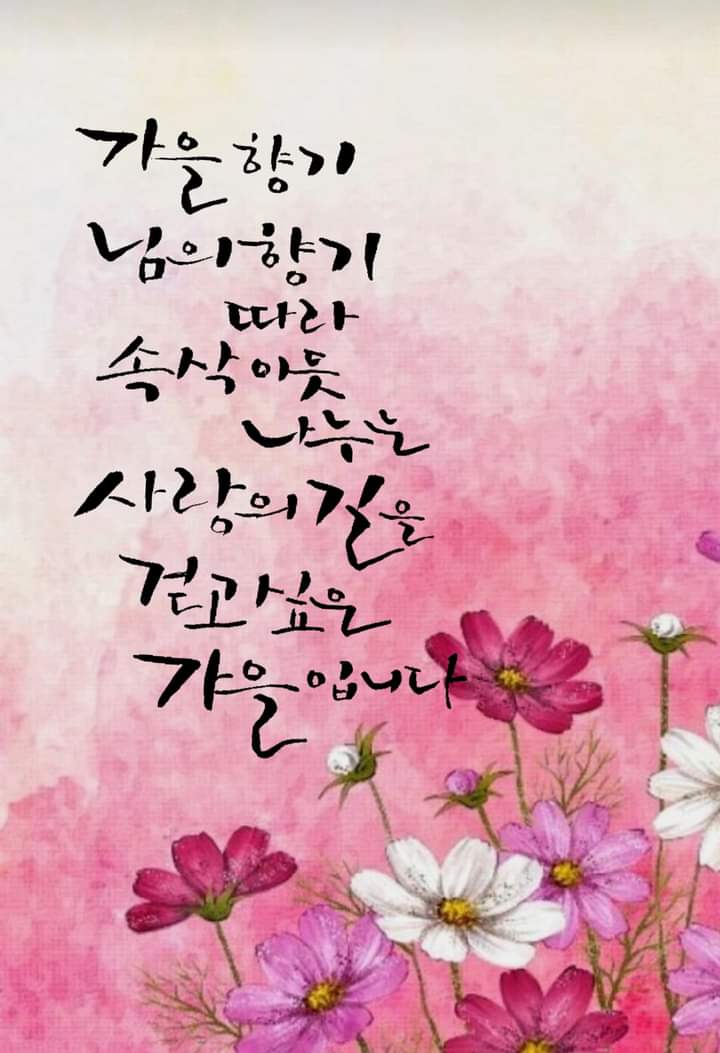 가을 향기
님의 향기
따라
속삭이듯
나누는
사랑의 길을
걷고 싶은
가을입니다